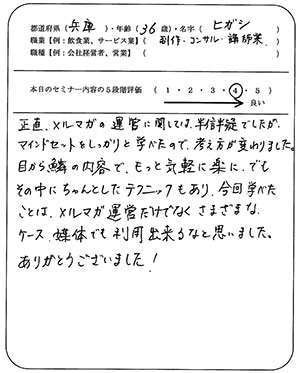 都道府県（兵庫）・年齢（36歳）・名字（ヒガシ）
職業【例：飲食業、サービス業】（制作・コンサル・講師業）
職種【例：会社経営者、営業】（　）
本日のセミナー内容の５段階評価（ 1 ・ 2 ・ 3 ・ 4 ・ 5 ）
良い
正直、メルマガの運営に関しては、半信半疑でしたが、
マインドセットをしっかりと学べたので、考え方が変わりました。
目から鱗の内容で、もっと気軽に楽に、でも
その中にちゃんとしたテクニックもあり、今回学べた
ことは、メルマガ運営だけでなくさまざまな、
ケース、媒体でも利用出来るなと思いました。
ありがとうございました！